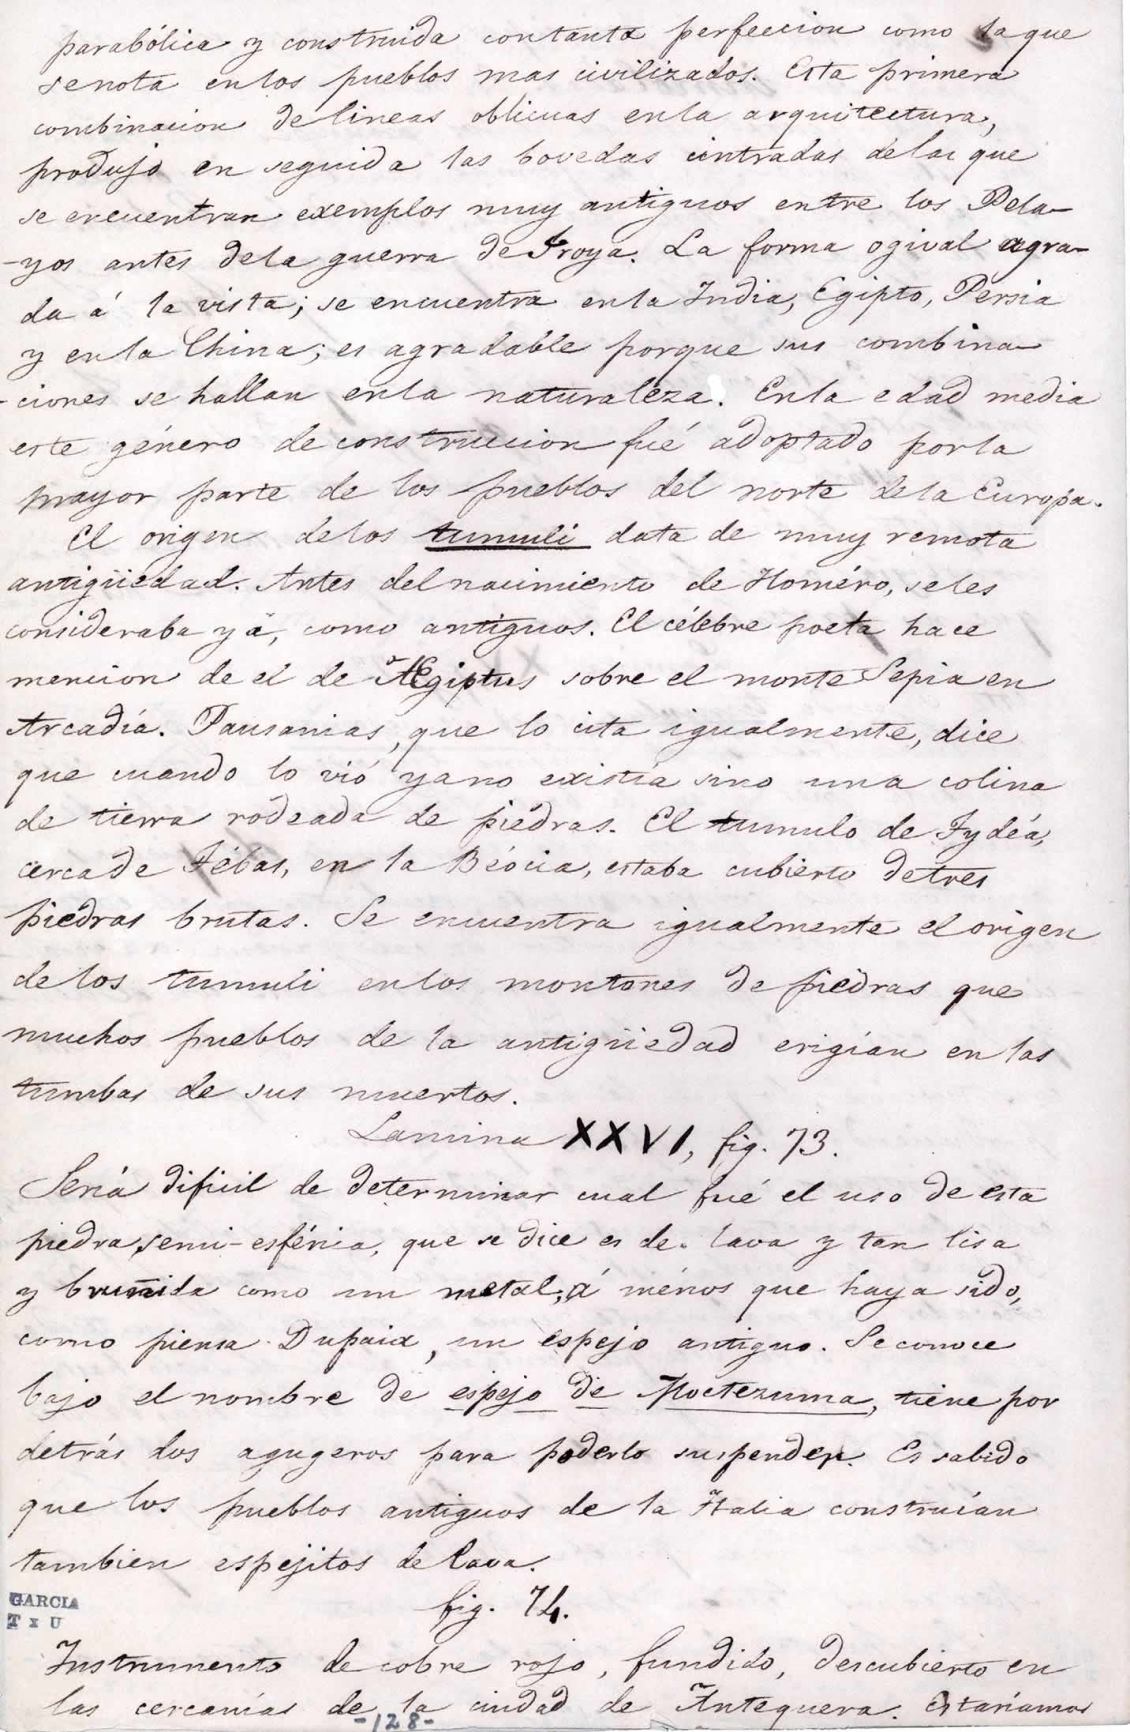 parabólica y construida con tanta perfeccion como la que
se nota en los pueblos mas civilizados. Esta primera
combinacion de lineas oblicuas en la arquitectura,
produjo en seguida las bovedas cintradas de las que
se encuentran exemplos muy antiguos entre los Pela-
-yos antes de la guerra de Troya. La forma ogival agra-
da á la vista; se encuentra en la India, Egipto, Persia
y en la China; es agradable porque sus combina-
-ciones se hallan en la naturaleza. En la edad media
este género de construccion fué adoptado por la
mayor parte de los pueblos del norte de la Europa.
El origen de los tumuli data de muy remota
antigüedad. Antes del nacimiento de Homéro, se les
consideraba yá, como antiguos. El célebre poeta hace
mencion de el de Ægiptus sobre el monte Sepia en
Arcadía. Pausanias, que lo cita igualmente, dice
que cuando lo vió ya no existía sino una colina
de tierra rodeada de piédras. El tumulo de Tydéa,
cerca de Tébas, en la Béocia, estaba cubierto de tres
piedras brutas. Se encuentra igualmente el origen
de los tumuli en los montones de piédras que
muchos pueblos de la antigüedad erigían en las
tumbas de sus muertos.
Lamina XXVI, fig. 73.
Sería dificil de determinar cual fué el uso de esta
piedra semi-esférica, que se dice es de lava y tan lisa
y bruñida como un metal, á ménos que haya sido,
como piensa Dupaix, un espejo antiguo. Se conoce
bajo el nombre de espejo de Moctezuma, tiene por
detrás dos agugeros para poderlo suspender. Es sabido
que los pueblos antiguos de la Italia construían
tambien espejitos de lava.
fig. 74.
GARCIA
T x U
Instrumento de cobre rojo, fundido, descubierto en
las cercanías de la ciudad de Antequera. Estaríamos
-128-